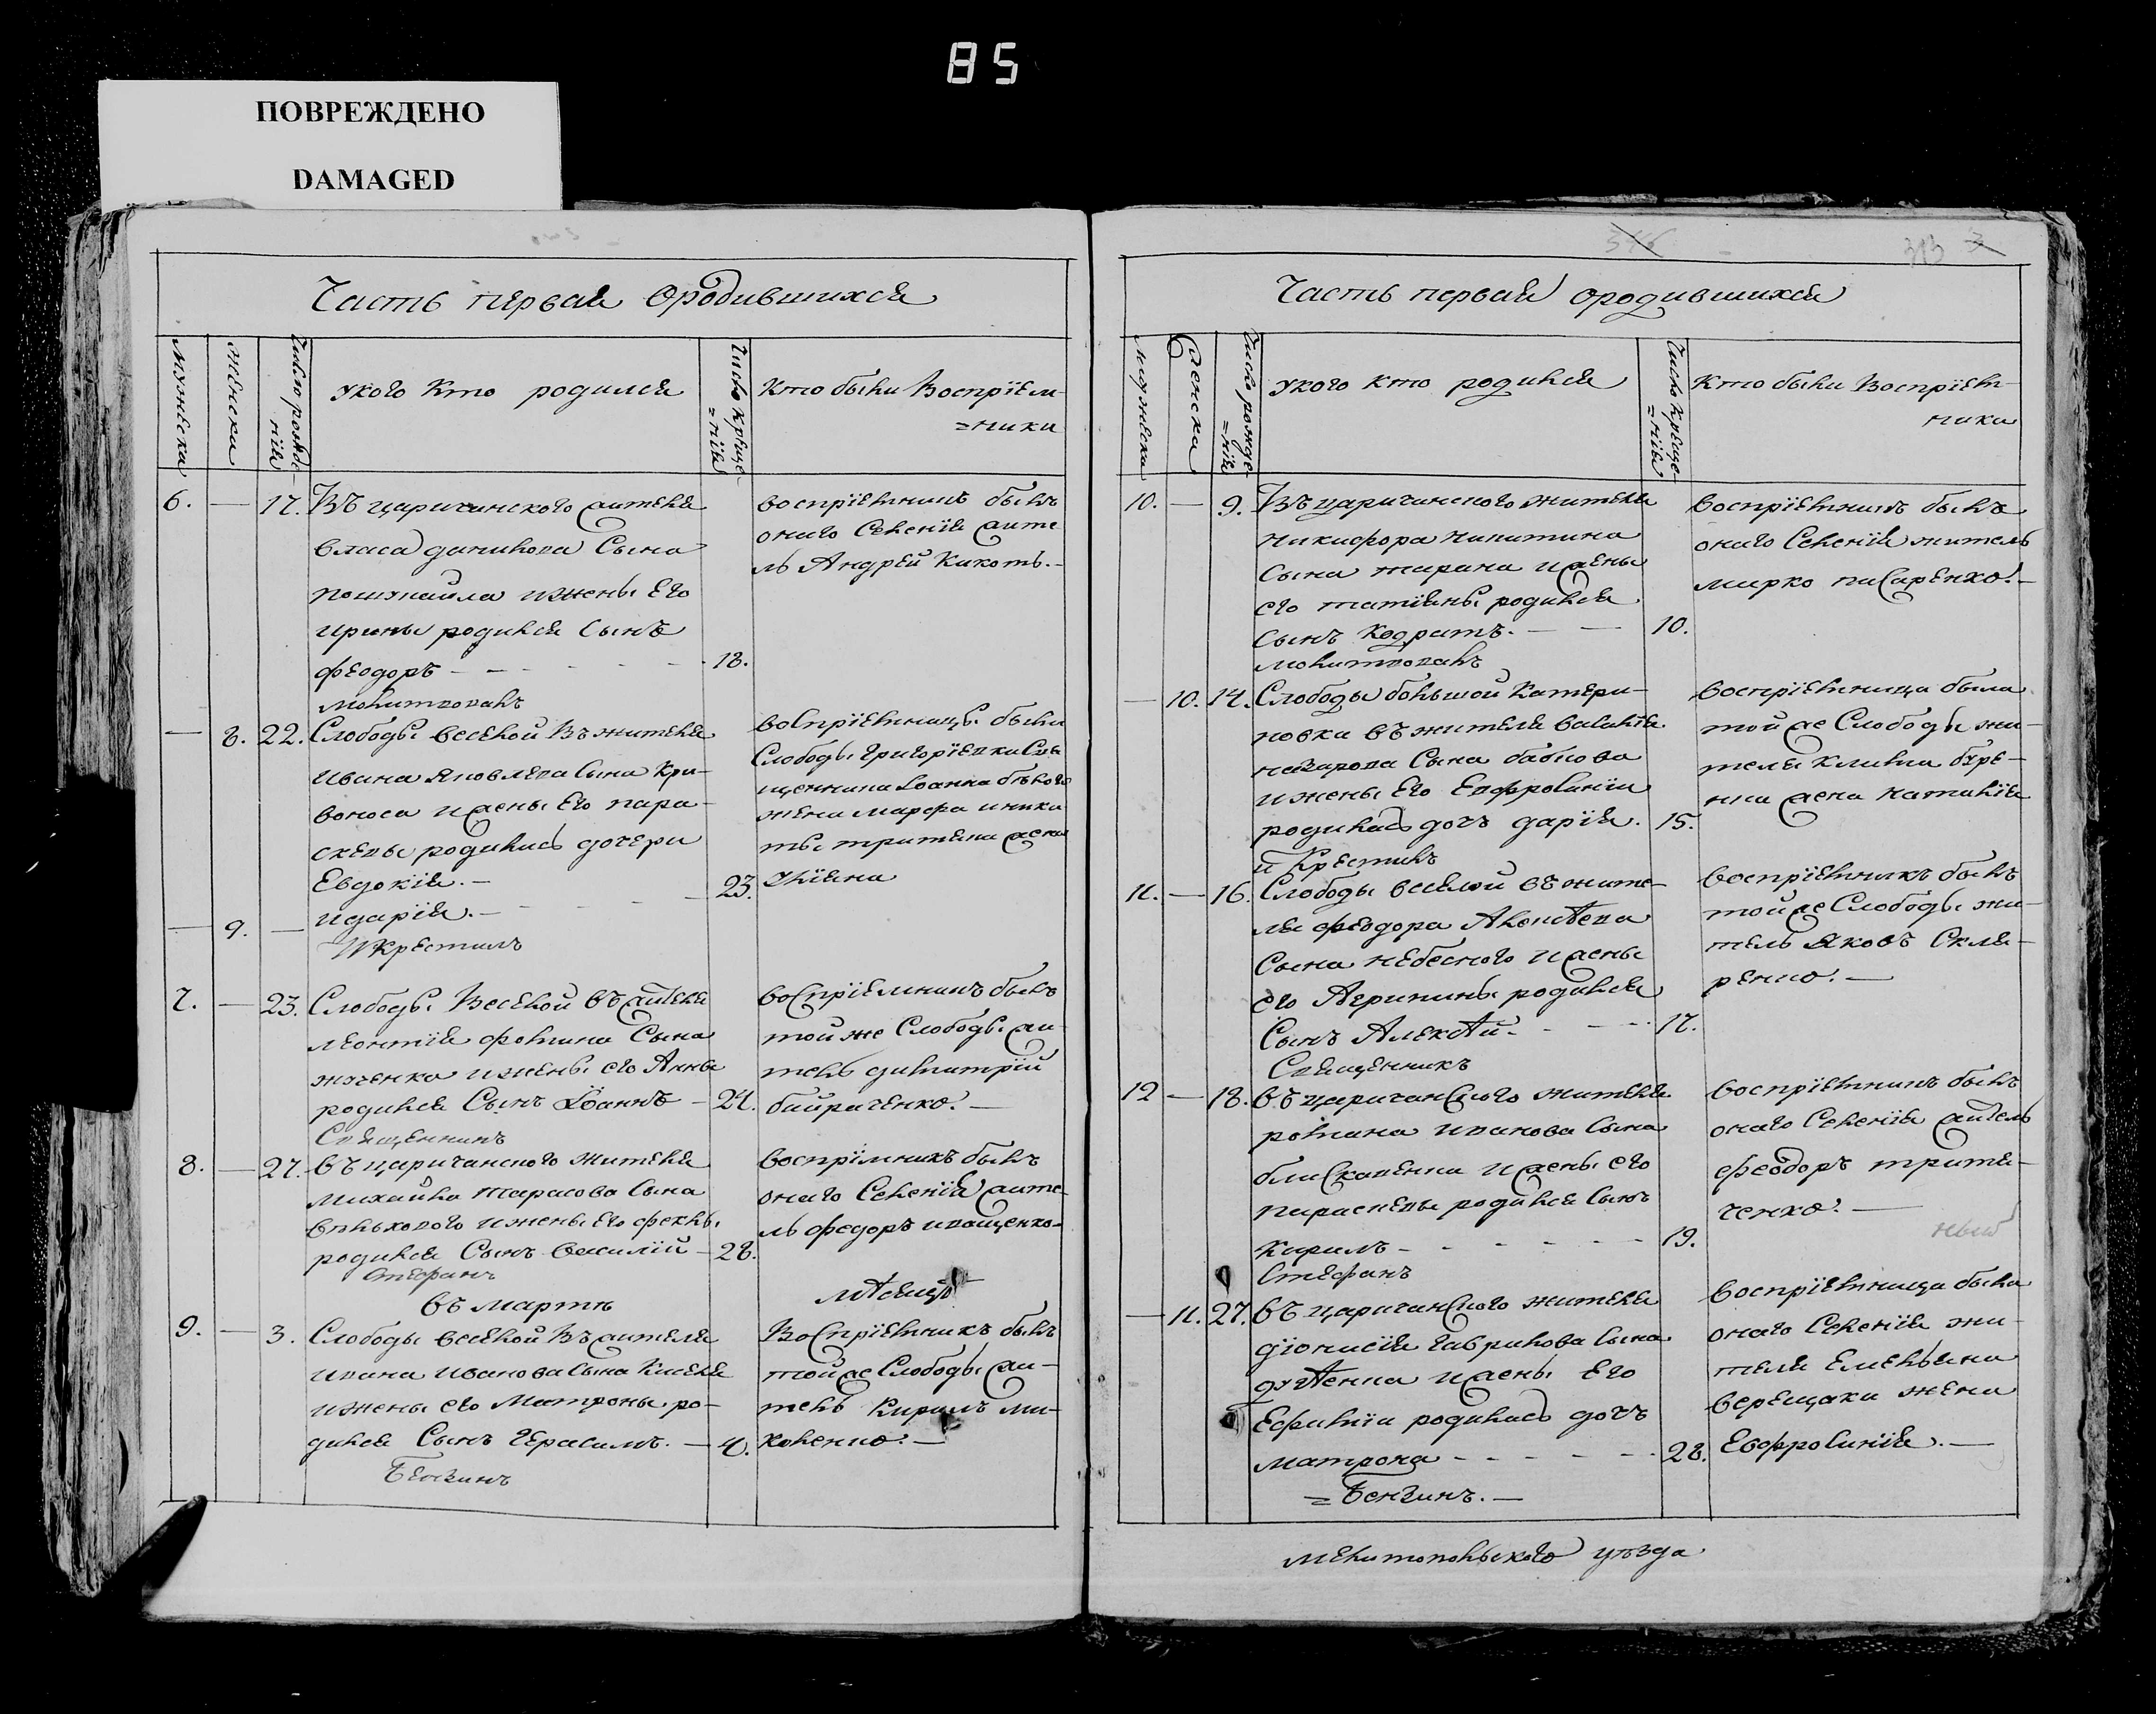 85
ПОВРЕЖДЕНО
DAMAGED
Часть первая ородившихся
мужеска
женска
Число рожде
=нїя
укого кто родился
Число крѣще
=нїя
Кто были Воспрїем-
=ники
6. — 17. Въ царичанского жителя
власа данилова Сына
ижены Его
ирины родился Сынъ
феодоръ — 18.
воспрїемникъ былъ
онаго Селенїя жите
ль Андрей Кикоть.-
— 8. 22. Слободы веселой Въ жителя
ивана яковлева Сына Кри-
воноса ижены Его пара-
скевы родились дочери
Евдокїя. — 23.
— 9. — идарїя. —
Икрестилъ
воспрїемницы были
Слободы григорїевки Свя
щенника Iоанна бѣлого
жена марфа иники
ты жена
7. — 23. Слободы Веселой въ жителя
леонтїя фомина Сына
ижены его Анны
родился Сынъ Iоаннъ — 24.
Священникъ
воспрїемникъ былъ
той же Слободы жи-
тель димитрїй
байраченко. —
8. — 27. въ царичанского жителя
михайла тарасова Сына
ижены его феклы
родился Сынъ василїй — 28.
Стефанъ
воспрїмникъ былъ
онаго Селенїя жите-
ль федоръ иващенко-
въ мартѣ
мѣсяцѣ
9. — 3. Слободы веселой Въ жителя
ивана иванова Сына Киселя
ижены его Матроны ро-
дился Сынъ Герасимъ. — 4.
Бензинъ
Воспрїемникъ былъ
тойже Слободы жи-
тель Кирилъ ми-
холенко. —
313
Часть первая ородившихся
мужеска
женска
Число рожде
=нїя
укого кто родился
Число крѣще-
=нїя
Кто были Воспрїем-
ники
10. — 9. Въ царичанского жителя
никифора никитина
Сына ижены
его татїяны родился
Сынъ Кодратъ. — 10.
воспрїемникъ былъ
онаго Селенїя житель
марко писаренко. —
— 10. 14. Слободы большой Катери-
новки въ жителя василїя
назарова Сына бабкова
ижены Его Евфросинїи
родилась дочь дарїя. 15.
и Крестилъ
воспрїемница была
тойже Слободы жи-
теля
жена наталїя
11. — 16. Слободы веселой въ жите-
ля феодора Алексѣева
Сына небесного ижены
его Агрипины родился
Сынъ Алексѣй — 17.
Священникъ
воспрїемникъ былъ
тойже Слободы жи-
тель Яковъ Скля-
ренко. —
12 — 18. въ царичанского жителя
романа иванова Сына
ижены его
параскевы родился Сынъ
Кирилъ — 19.
Стефанъ
воспрїемникъ былъ
онаго Селенїя житель
феодоръ притя-
ченко. —
— 11. 27. въ царичанского жителя
дїонисїя гаврилова Сына
ижены Его
Ефимїи родилась дочь
матрона — 28.
=Бензинъ. —
воспрїемница была
онаго Селенїя жи-
теля Емельяна
верещаки жена
Евфросинїя. —
мелитопольского уѣзда